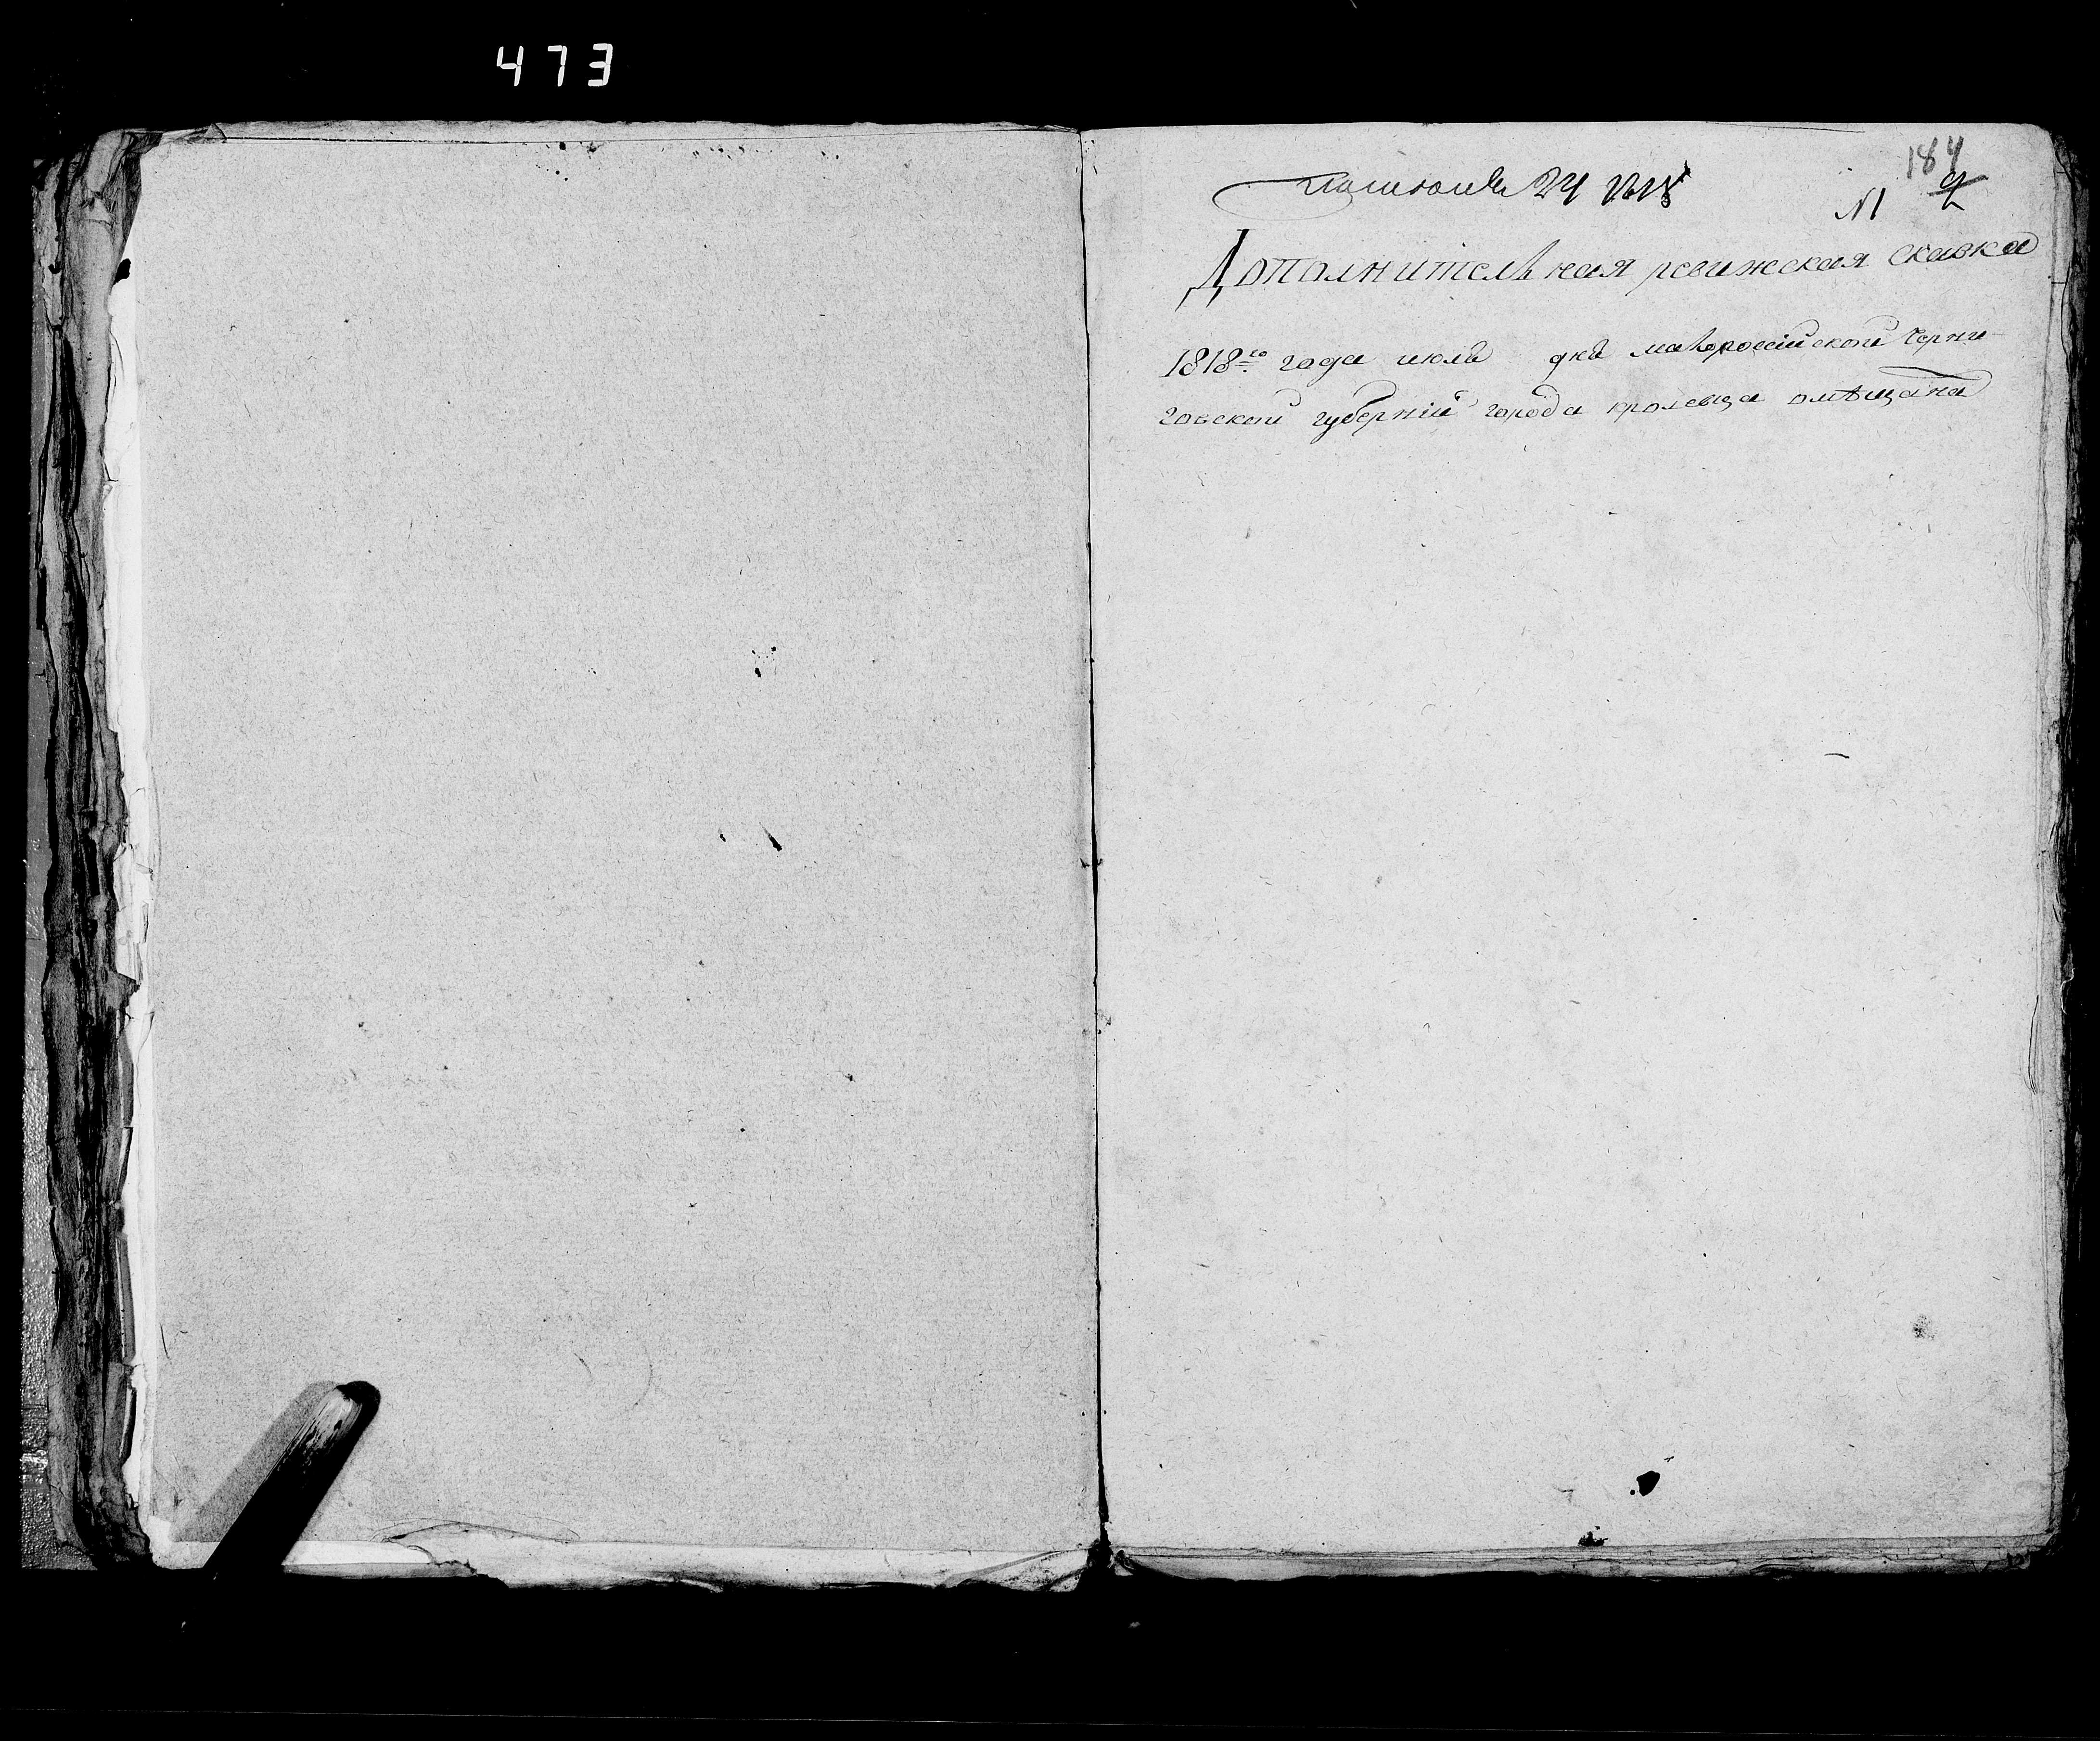 473
184
24 1818
№ 2
Дополнительная ревижская скаска
1818го года июля дня малоросийской Черни-
говской губернии города кролевца омѣщана